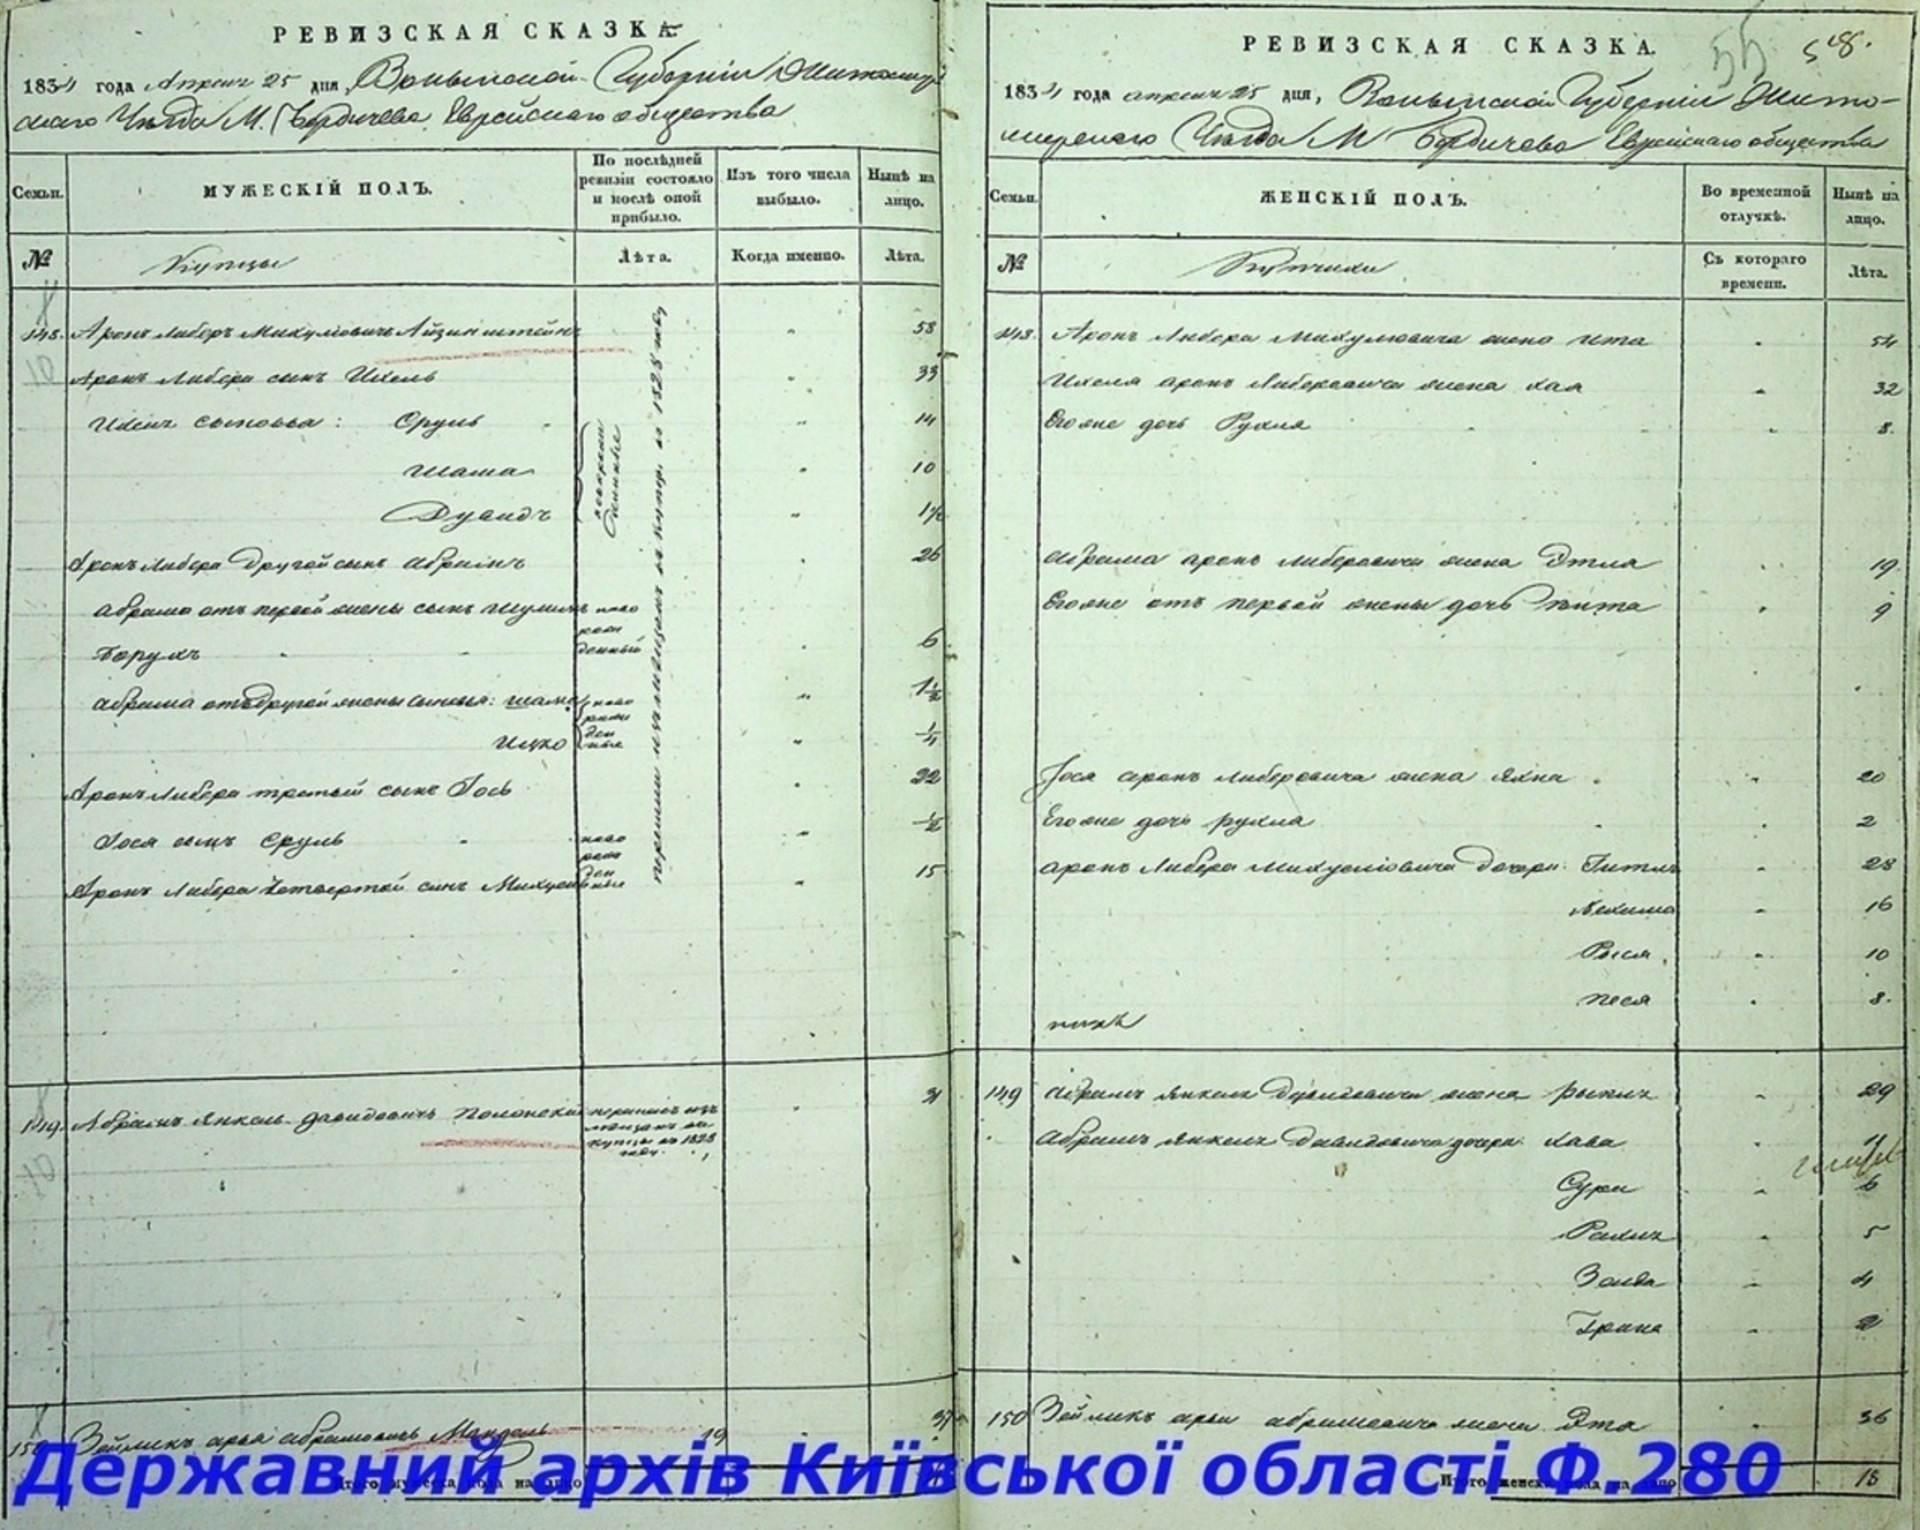 РЕВИЗСКАЯ СКАЗКА
1834 года Апреля 25 дня, Волынской Губернии Житомир
скаго Уезда М. Бердичева Еврейскаго общества
Семьи.
МУЖЕСКІЙ ПОЛЪ.
По послѣдней ревизіи состояло и послѣ оной прибыло.
Изъ того числа выбыло.
Нынѣ на лицо.
№
Купцы
Лѣта.
Когда именно.
Лѣта.
148. Аронъ Либеръ Михумовичъ Айзинштейнъ 58
Аронъ Либера сынъ Ихель 33
Ихеля сыновья: Сруль 14
Шама 10
Дувидъ 1½
новорожденные
перешли изъ мещанъ въ купцы въ 1828 году
Аронъ Либера другой сынъ Абрамъ 26
Абрама отъ первой жены сынъ Шулимъ новорожденный
Борухъ 6
Абрама отъ другой жены сыновья: Шама новорожденные 1½
Ицко ¼
Аронъ Либера третьй сынъ Іось 22
Іося сынъ Сруль новорожденные ½
Аронъ Либера Четвертой сынъ Михуель 15
149. Абрамъ Янкель Давидовичъ Полонский перешелъ изъ мещанъ въ купцы въ 1828 году 31
150 Зейликъ Арья Абрамовичъ Мандель 19 37
Итого мужеска пола на лицо
РЕВИЗСКАЯ СКАЗКА.
55 58.
1834 года апреля 25 дня, Волынской Губернии Жито-
мирскаго Уезда М Бердичева Еврейскаго общества
Семьи.
ЖЕНСКІЙ ПОЛЪ.
Во временной отлучкѣ.
Нынѣ на лицо.
№
Купчихи
Съ котораго времени.
Лѣта.
148. Аронъ Либера Михумовича жена Ита 54
Ихеля Аронъ Либеровича жена Хая 32
Его же дочь Рухля 8.
Абрама Аронъ Либеровича жена Этля 19
Его же отъ первой жены дочь Гита 9
Іося Аронъ Либеровича жена Яхна 20
Его же дочь Рухля 2
Аронъ Либера Михуелевича дочери: Гитль 28
Нехама 16
Рыся 10
Песя 8.
149 Абрамъ Янкеля Давидовича жена Рыкль 29
Абрамъ Янкеля Давидовича дочери: Хава 11
Сура 6
Рахиль 5
Зелда 4
Грина 2
150 Зейликъ Арьи Абрамовича жена Эта 36
Итого женска пола на лицо 18
Державний архів Київської області Ф.280